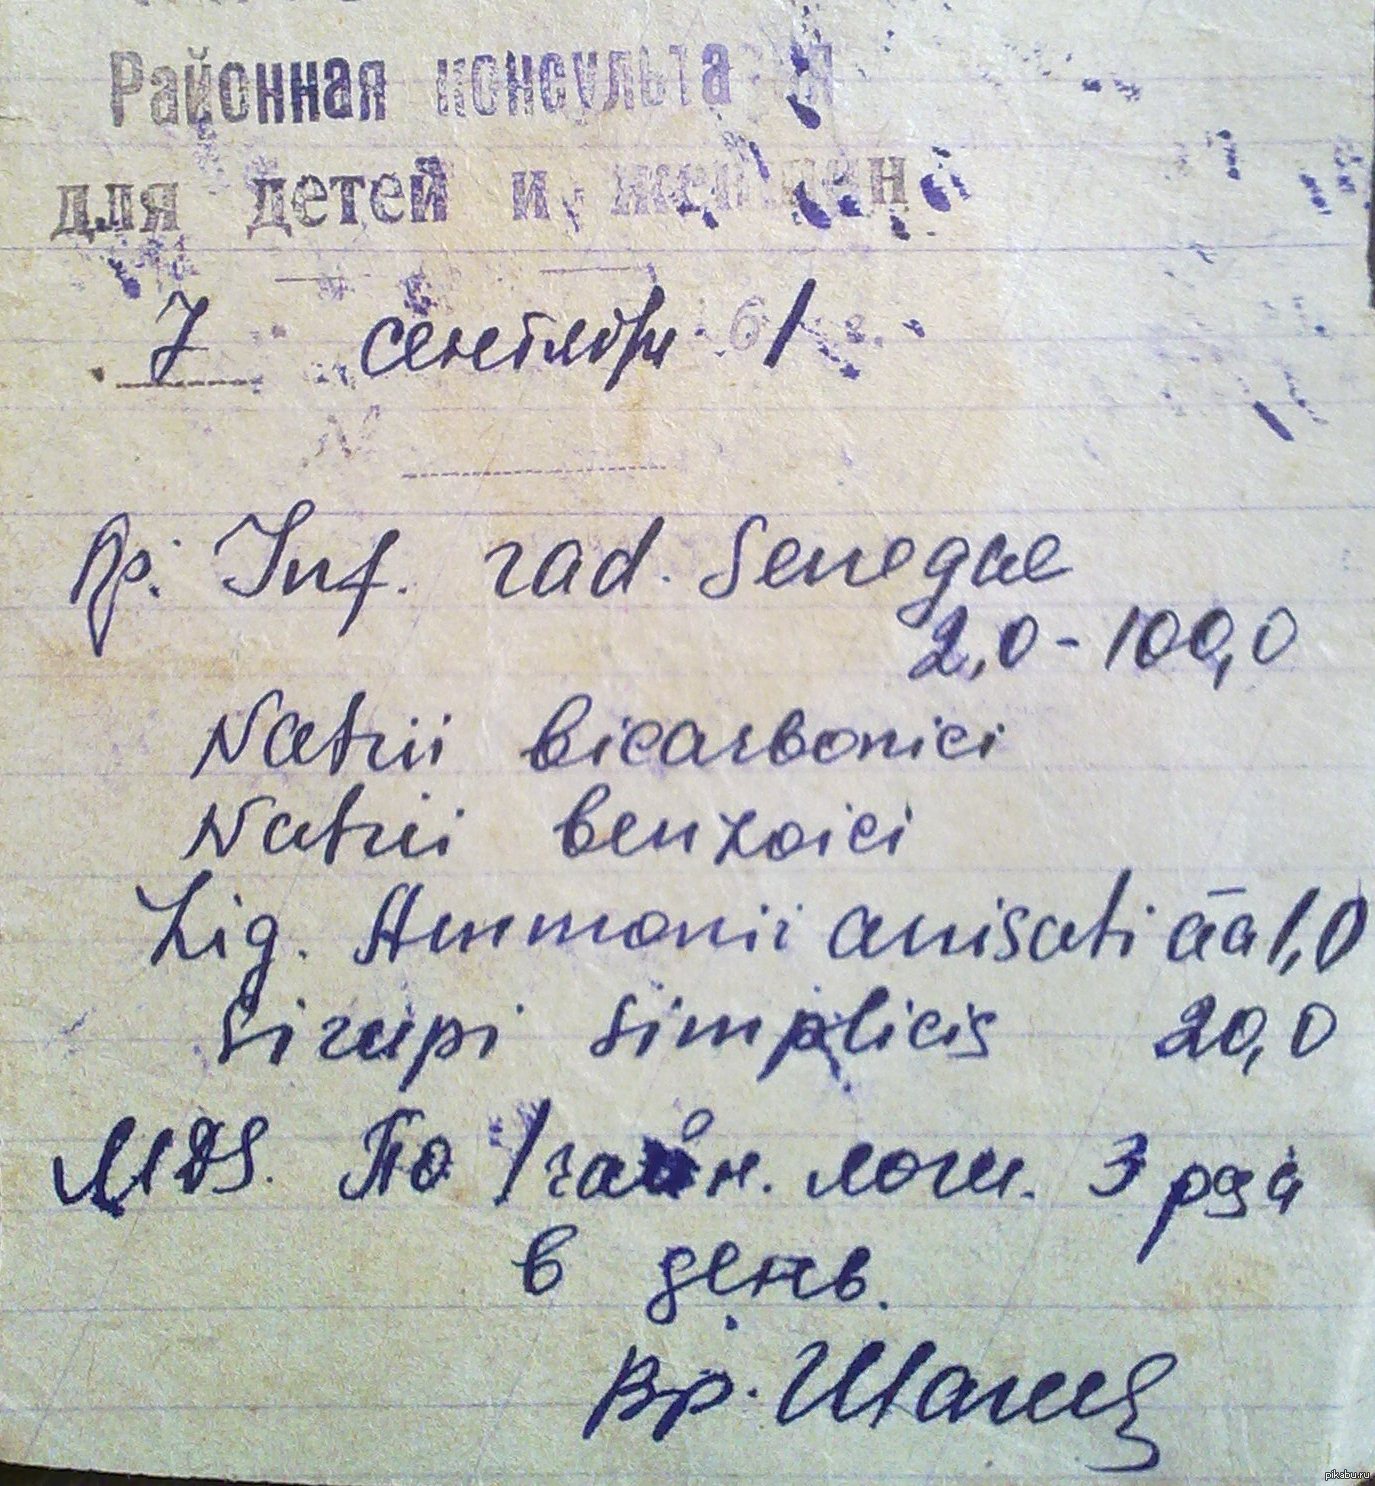 Районная консультация
для детей и женщин
7 сентября 61 г.
№
Rp: Inf. rad. Senegae
2,0-100,0
Natrii bicarbonici
Natrii benzoici
Liq. Ammonii anisati āā 1,0
Sirupi simplicis 20,0
MDS. По 1 чайн. лож. 3 раза
в день.
Вр.
pikabu.ru